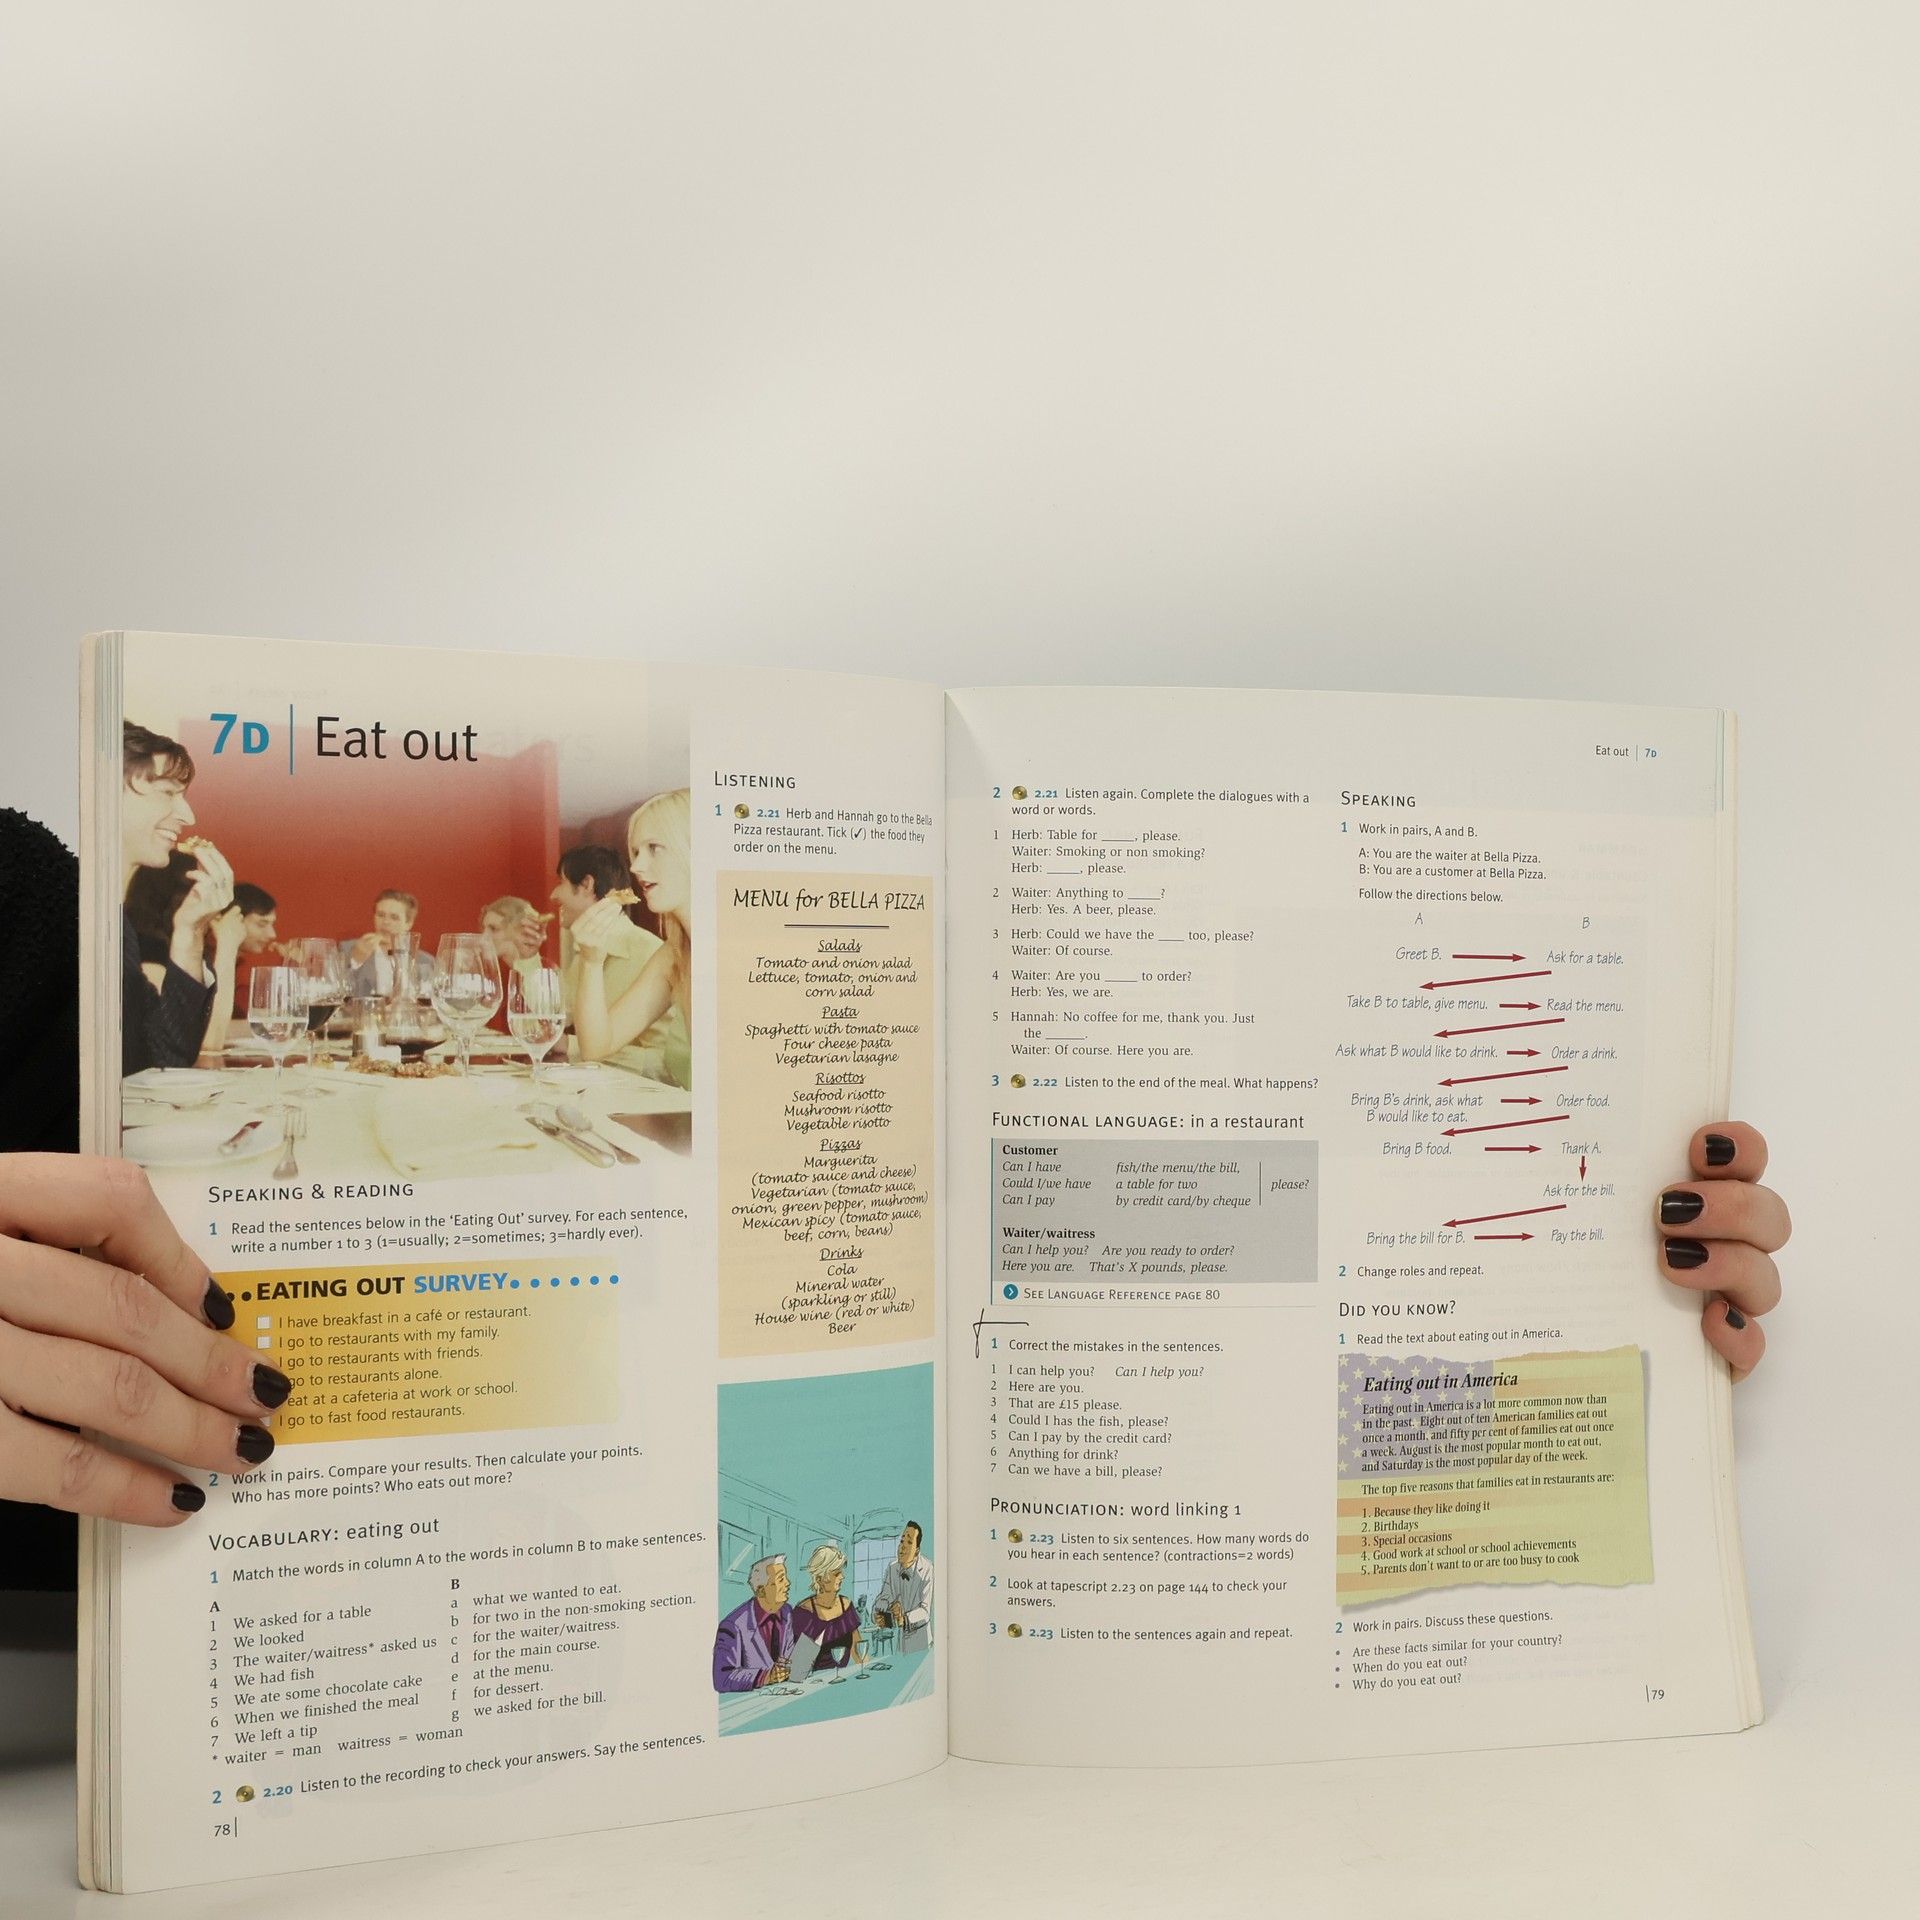 7D | Eat out
SPEAKING & READING
1 Read the sentences below in the ‘Eating Out’ survey. For each sentence,
write a number 1 to 3 (1=usually; 2=sometimes; 3=hardly ever).
EATING OUT SURVEY
I have breakfast in a café or restaurant.
I go to restaurants with my family.
I go to restaurants with friends.
go to restaurants alone.
eat at a cafeteria at work or school.
I go to fast food restaurants.
2 Work in pairs. Compare your results. Then calculate your points.
Who has more points? Who eats out more?
VOCABULARY: eating out
1 Match the words in column A to the words in column B to make sentences.
A
1 We asked for a table
2 We looked
3 The waiter/waitress* asked us
4 We had fish
5 We ate some chocolate cake
6 When we finished the meal
7 We left a tip
* waiter = man waitress = woman
B
a what we wanted to eat.
b for two in the non-smoking section.
c for the waiter/waitress.
d for the main course.
e at the menu.
f for dessert.
g we asked for the bill.
2 2.20 Listen to the recording to check your answers. Say the sentences.
78
LISTENING
1 2.21 Herb and Hannah go to the Bella
Pizza restaurant. Tick (✓) the food they
order on the menu.
MENU for BELLA PIZZA
Salads
Tomato and onion salad
Lettuce, tomato, onion and
corn salad
Pasta
Spaghetti with tomato sauce
Four cheese pasta
Vegetarian lasagne
Risottos
Seafood risotto
Mushroom risotto
Vegetable risotto
Pizzas
Marguerita
(tomato sauce and cheese)
Vegetarian (tomato sauce,
onion, green pepper, mushroom)
Mexican spicy (tomato sauce,
beef, corn, beans)
Drinks
Cola
Mineral water
(sparkling or still)
House wine (red or white)
Beer
Eat out | 7D
2 2.21 Listen again. Complete the dialogues with a
word or words.
1 Herb: Table for _____, please.
Waiter: Smoking or non smoking?
Herb: _____, please.
2 Waiter: Anything to _____?
Herb: Yes. A beer, please.
3 Herb: Could we have the ____ too, please?
Waiter: Of course.
4 Waiter: Are you _____ to order?
Herb: Yes, we are.
5 Hannah: No coffee for me, thank you. Just
the ______.
Waiter: Of course. Here you are.
3 2.22 Listen to the end of the meal. What happens?
FUNCTIONAL LANGUAGE: in a restaurant
Customer
Can I have fish/the menu/the bill,
Could I/we have a table for two please?
Can I pay by credit card/by cheque
Waiter/waitress
Can I help you? Are you ready to order?
Here you are. That's X pounds, please.
SEE LANGUAGE REFERENCE PAGE 80
1 Correct the mistakes in the sentences.
1 I can help you? Can I help you?
2 Here are you.
3 That are £15 please.
4 Could I has the fish, please?
5 Can I pay by the credit card?
6 Anything for drink?
7 Can we have a bill, please?
PRONUNCIATION: word linking 1
1 2.23 Listen to six sentences. How many words do
you hear in each sentence? (contractions=2 words)
2 Look at tapescript 2.23 on page 144 to check your
answers.
3 2.23 Listen to the sentences again and repeat.
SPEAKING
1 Work in pairs, A and B.
A: You are the waiter at Bella Pizza.
B: You are a customer at Bella Pizza.
Follow the directions below.
A B
Greet B. Ask for a table.
Take B to table, give menu. Read the menu.
Ask what B would like to drink. Order a drink.
Bring B's drink, ask what Order food.
B would like to eat.
Bring B food. Thank A.
Ask for the bill.
Bring the bill for B. Pay the bill.
2 Change roles and repeat.
DID YOU KNOW?
1 Read the text about eating out in America.
Eating out in America
Eating out in America is a lot more common now than
in the past. Eight out of ten American families eat out
once a month, and fifty per cent of families eat out once
a week. August is the most popular month to eat out,
and Saturday is the most popular day of the week.
The top five reasons that families eat in restaurants are:
1. Because they like doing it
2. Birthdays
3. Special occasions
4. Good work at school or school achievements
5. Parents don't want to or are too busy to cook
2 Work in pairs. Discuss these questions.
• Are these facts similar for your country?
• When do you eat out?
• Why do you eat out?
79